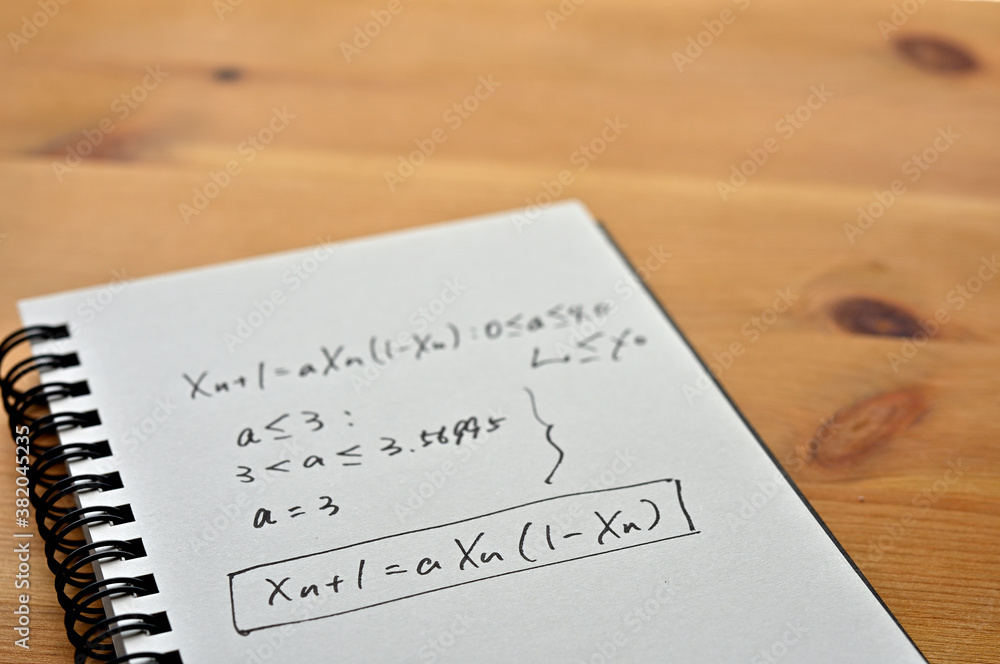 Xn+1=aXn(1-Xn):0≤a≤4.0
≤X0
a≤3:
3<a≤3.56995
a=3
Xn+1=aXn(1-Xn)
Adobe Stock
#382045235